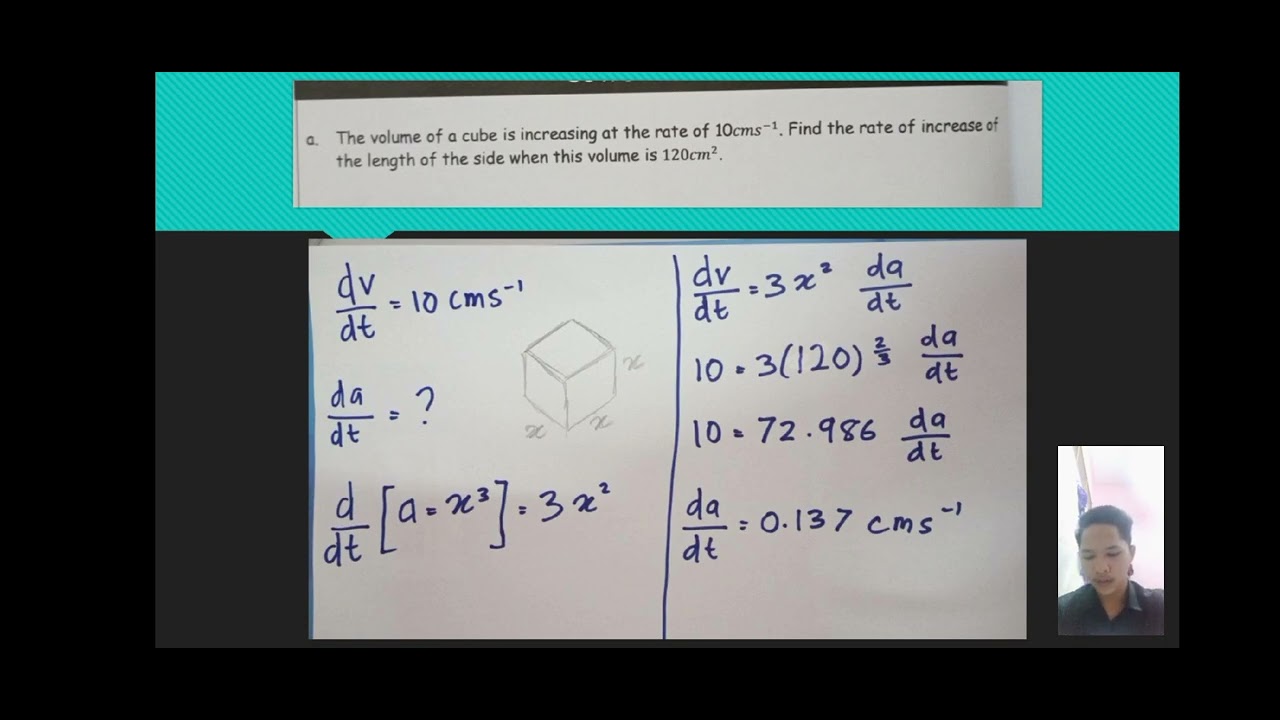 a. The volume of a cube is increasing at the rate of 10cms⁻¹. Find the rate of increase of
the length of the side when this volume is 120cm².
dv/dt = 10 cms⁻¹
x
x
x
da/dt = ?
d/dt [a = x³] = 3x²
dv/dt = 3x² da/dt
10 = 3(120)^⅔ da/dt
10 = 72.986 da/dt
da/dt = 0.137 cms⁻¹